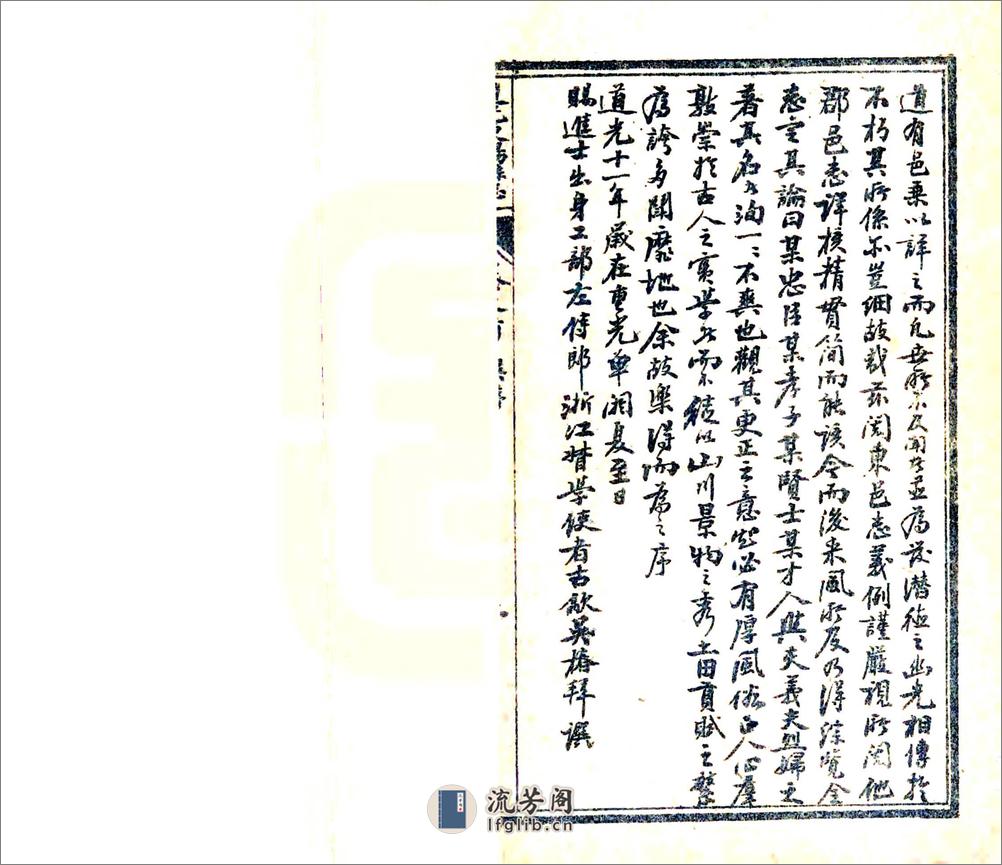 道有邑乘以詳之而凡世所不及聞者並為發潛德之幽光相傳於
不朽其所係尔豈細故哉茲閱東邑志義例謹嚴視所閱他
郡邑志詳核精貫簡而能該今而後采風所及乃得綜覽全
志定其論曰某忠臣某孝子某賢士某才人與夫義夫烈婦之
著其名者洵一二不爽也觀其更正之意起必有厚風俗正人心羣
敦崇於古人之實學者而不徒以山川景物之秀土田貢賦之繁
為誇多鬪靡地也余故樂得而為之序
道光十一年歲在重光單閼夏至日
賜進士出身工部左侍郎浙江督學使者古歙吳椿拜譔
流芳阁
lfglib.cn